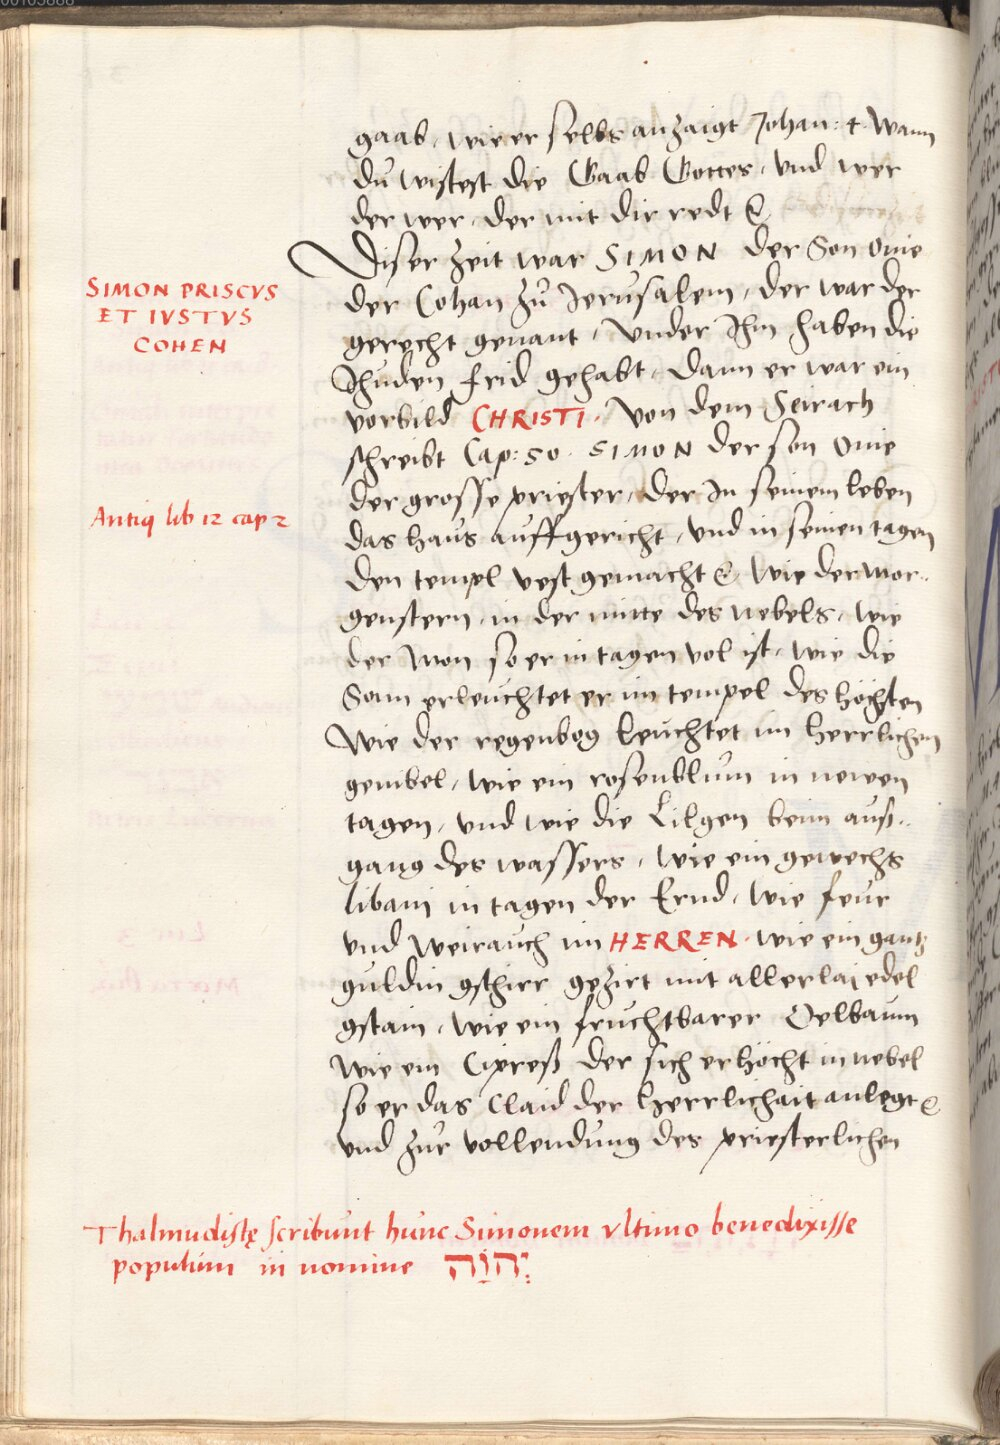 gaab, wie er selbs anzaigt Johan: 4. Wann
du wistest die Gaab Gottes, und wer
der wer, der mit dir redt &
Diser Zeit war SIMON der Son Onie
SIMON PRISCVS
ET IVSTVS
COHEN
der Cohan zu Jerusalem, der war der
gerecht genant, Vnder Ihm haben die
Jhuden frid gehabt, dann er war ein
vorbild CHRISTI. Von dem Seirach
schreibt Cap: 50. SIMON der son Onie
der grosse priester, der In seinem leben
Antiq lib 12 cap 2
das haus auffgericht, vnd in seinen tagen
den tempel vest gemacht & Wie der mor..
genstern, in der mitte des nebels, wie
der Mon so er in tagen vol ist, wie die
Sonn erleuchtet er im tempel des höchsten
Wie der regenbog leuchtet im herrlichen
gewibel, wie ein rosenblum in newen
tagen, vnd wie die Lilgen beim auß..
gang des wassers, wie ein gewechs
libani in tagen der Ernd, wie feur
vnd Weirauch im HERREN. wie ein gantz
guldin gschirr gezirt mit allerlaj edel
gstain, wie ein fruchtbarer Oelbaum
wie ein Cipreß der sich erhöcht in nebel
so er das Claid der herrlichait anlegt &
vnd zur vollendung des priesterlichen
Thalmudistę scribunt hunc Simonem vltimo benedixisse
populum in nomine יְהוָֹה